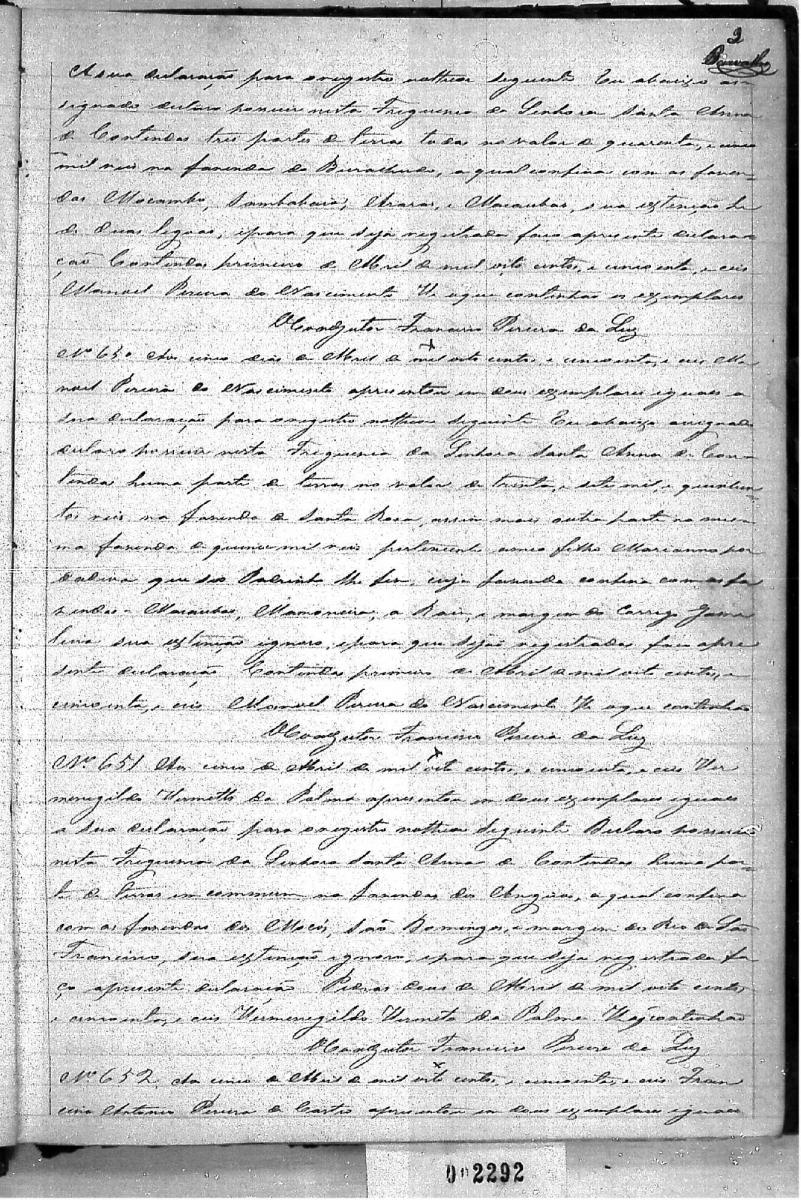 2
Carvalho
A sua declaração para o registro no theor seguinte Eu abaixo as-
signado declaro possuir nesta Freguesia da Senhora Santa Anna
de Contendas tres partes de terras todas no valor de quarenta, e cinco
mil reis na fazenda do, a qual confina com as fasen-
das Mocambo, Sambahiba, Araras, e Macaubas, sua extenção he
de duas legoas, e para que seja registrada faço a presente declara-
ção Contendas primeiro de Abril de mil oito centos, e cincoenta, e seis
Manoel Pereira do Nascimento He o que continhão os exemplares
O Coadjutor Francisco Pereira da Luz
Nº 650 Aos cinco dias de Abril de mil oito centos, e cincoenta, e seis Ma
noel Pereira do Nascimento apresentou em dous exemplares iguaes a
sua declaração para o registro no theor seguinte Eu abaixo assignado
declaro possuir nesta Freguesia da Senhora Santa Anna de Con-
tendas huma parte de terras no valor de trinta, e sete mil, e quinhen-
tos reis na fazenda de Santa Rosa, assim mais outra parte na mes-
ma fazenda de quinse mil reis pertencente a meo filho Marianno por
dadiva que seo Padrinho lhe fez, cuja fazenda confina com as fa
zendas Macaubas, Mamoneira, a, e margem do Corrego Game
leira sua extenção ignoro, e para que sejão registradas faço a pre
sente declaração Contendas primeiro de Abril de mil oito centos, e
cincoenta, e seis Manoel Pereira do Nascimento He o que continhão
O Coadjutor Francisco Pereira da Luz
Nº 651 Aos cinco de Abril de mil oito centos, e cincoenta, e seis Her
menegildo Hermetto da Palma apresentou em dous exemplares iguaes
a sua declaração para o registro no theor seguinte Declaro possuir
nesta Freguesia da Senhora Santa Anna de Contendas huma par-
te de terras em commum na fazendas dos Angicos, a qual confina
com as fazendas dos Mocós, São Domingos, e margem do Rio de São
Francisco, sua extenção ignoro, e para que seja registrada fa
ço a presente declaração Pedras dous de Abril de mil oito centos,
e cincoenta, e seis Hermenegildo Hermeto da Palma He o q continhão
O Coadjutor Francisco Pereira da Luz
Nº 652 Aos cinco de Abril de mil oito centos, e cincoenta, e seis Fran
cisco Antonio Pereira de Castro apresentou em dous exemplares iguaes
002292